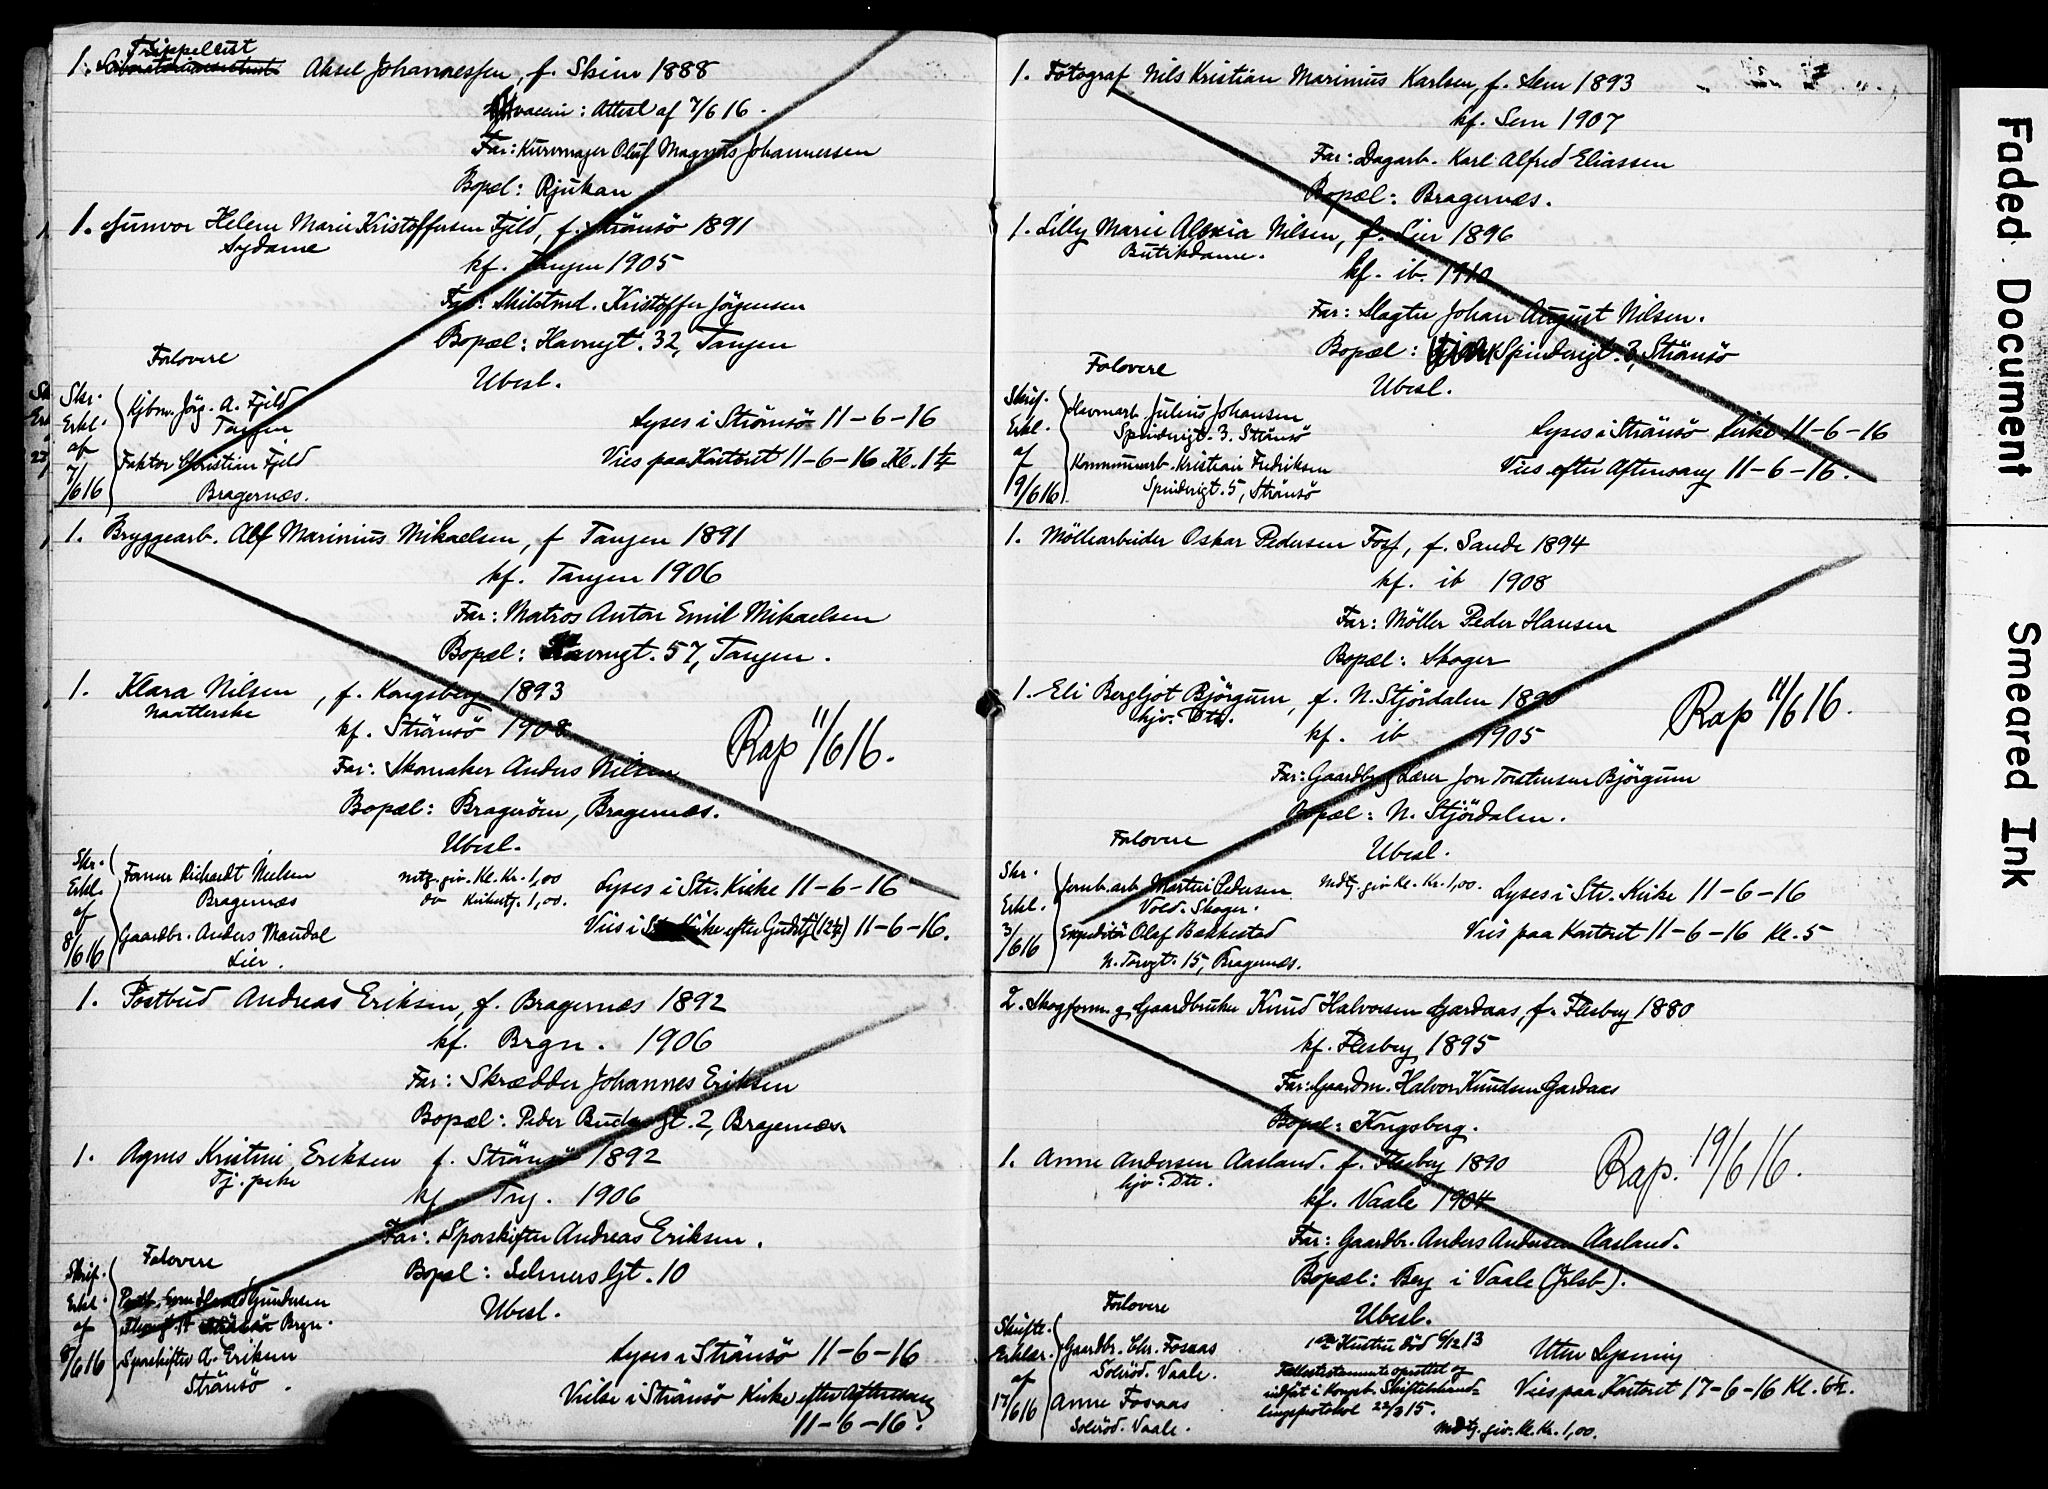 1. Aksel Johannessen, f. Skien 1888
vaccin: Attest af 7/6 16.
Far: Kurvmager Oluf Magnus Johannessen
Bopæl: Rjukan
1. Gunvor Helene Marie Kristoffersen Fjeld, f. Strömsö 1891
Sydame
kf. Tangen 1905
Far: Skibstmd. Kristoffer Jörgensen
Bopæl: Havnegt. 32, Tangen
Forlovere
Ubesl.
Skr. Erkl. af 7/6 16
Kjbm. Jörg. A. Fjeld
Tangen
Faktor Christian Fjeld
Bragernæs.
Lyses i Strömsö 11-6-16
Vies paa Kontoret 11-6-16 Kl. 1¼
1. Bryggearb. Alf Marinius Mikaelsen, f Tangen 1891
kf. Tangen 1906
Far: Matros Anton Emil Mikaelsen
Bopæl: Havnegt. 57, Tangen.
1. Klara Nilsen, f. Kongsberg 1893
Naatlerske
kf. Strömsö 1908
Far: Skomaker Anders Nilsen
Rap 11/6 16.
Bopæl: Bragerøen, Bragernæs.
Ubesl.
Skr. Erkl. af 8/6 16
Former Richardt Nielsen
Bragernæs
Gaardbr. Anders Maudal
Lier.
mtg. giv. Kl. Kr. 1,00
do Kirketj. 1,00.
Lyses i Str. Kirke 11-6-16
Vies i Kirke efter Gudstj (12½) 11-6-16.
1. Postbud Andreas Eriksen, f. Bragernæs 1892
kf. Brgn. 1906
Far: Skrædder Johannes Eriksen
Bopæl: Peder Budes gt. 2, Bragernæs
1. Agnes Kristine Eriksen f. Strömsö 1892
Tj. pike
kf Tng. 1906
Far: Sporskifter Andreas Eriksen.
Forlovere
Bopæl: Selmers Gt. 10
Ubesl.
Skrif. Erkl. af 8/6 16
Gundersen
Brgn.
Sporskifter A. Eriksen
Strömsö.
Lyses i Strömsö 11-6-16
Vielse i Strömsö Kirke efter Aftensang
11-6-16.
1. Fotograf Nils Kristian Marinius Karlsen, f. Sem 1893
kf. Sem 1907
Far: Dagarb. Karl Alfred Eliassen
Bopæl: Bragernæs.
1. Lilly Marie Alexia Nilsen, f. Lier 1896
Butikdame.
kf. ib. 1910
Far: Slagter Johan August Nilsen.
Bopæl: Spinderigt. 3, Strömsö
Forlovere
Ubesl.
Skrif. Erkl. af 19/6 16
Havnearb. Julius Johansen
Spinderigt. 3. Strömsö
Kommunearb. Kristian Fredriksen
Spinderigt. 5, Strömsö
Lyses i Strömsö Kirke 11-6-16
Vies efter Aftensang 11-6-16.
1. Möllearbeider Oskar Pedersen Foss, f. Sande 1894
kf. ib 1908
Far: Möller Peder Hansen
Bopæl: Skoger
1. Eli Bergljot Björgum, f. N. Stjördalen 1890
hjv. Dtr.
kf. ib 1905
Rap 11/6 16.
Far: Gaardbr. og Lærer Jon Torstensen Björgum
Bopæl: N. Stjördalen.
Forlovere
Ubesl.
Skr. Erkl. 3/6 16
Jernb. arb Martin Pedersen
Vold. Skoger.
Expeditör Olaf Bakkestad
N. Torvgt. 15, Bragernæs.
mdtg. giv Kl. Kr. 1,00.
Lyses i Str. Kirke 11-6-16
Vies paa Kontoret 11-6-16 Kl. 5
2. Skogform. og Gaardbruker Knud Halvorsen Gardaas, f. Flesberg 1880
kf. Flesberg 1895
Far: Gaardm. Halvor Knudsen Gardaas
Bopæl: Kongsberg.
1. Anne Andersen Aasland. f. Flesberg 1890
hjv. Dtr.
kf. Vaale 1904
Rap. 19/6 16.
Far: Gaardbr. Anders Andersen Aasland.
Bopæl: Berg i Vaale (Jrlsb).
Forlovere
Ubesl.
Skriftl. Erklær. af 17/6 16
Gaardbr. Chr. Fosaas
Solerød. Vaale.
Anne Fosaas
Solerød. Vaale.
1ste Hustru död 6/12 13
Fellestestamente oprettet og
indført i Kongsb. Skiftebehand-
lingsprotokol 22/3 15.
Uten Lysning
Vies paa Kontoret 17-6-16 Kl. 6½.
mdtg. giv. Kl. Kr. 1,00.
Faded Document
Smeared Ink